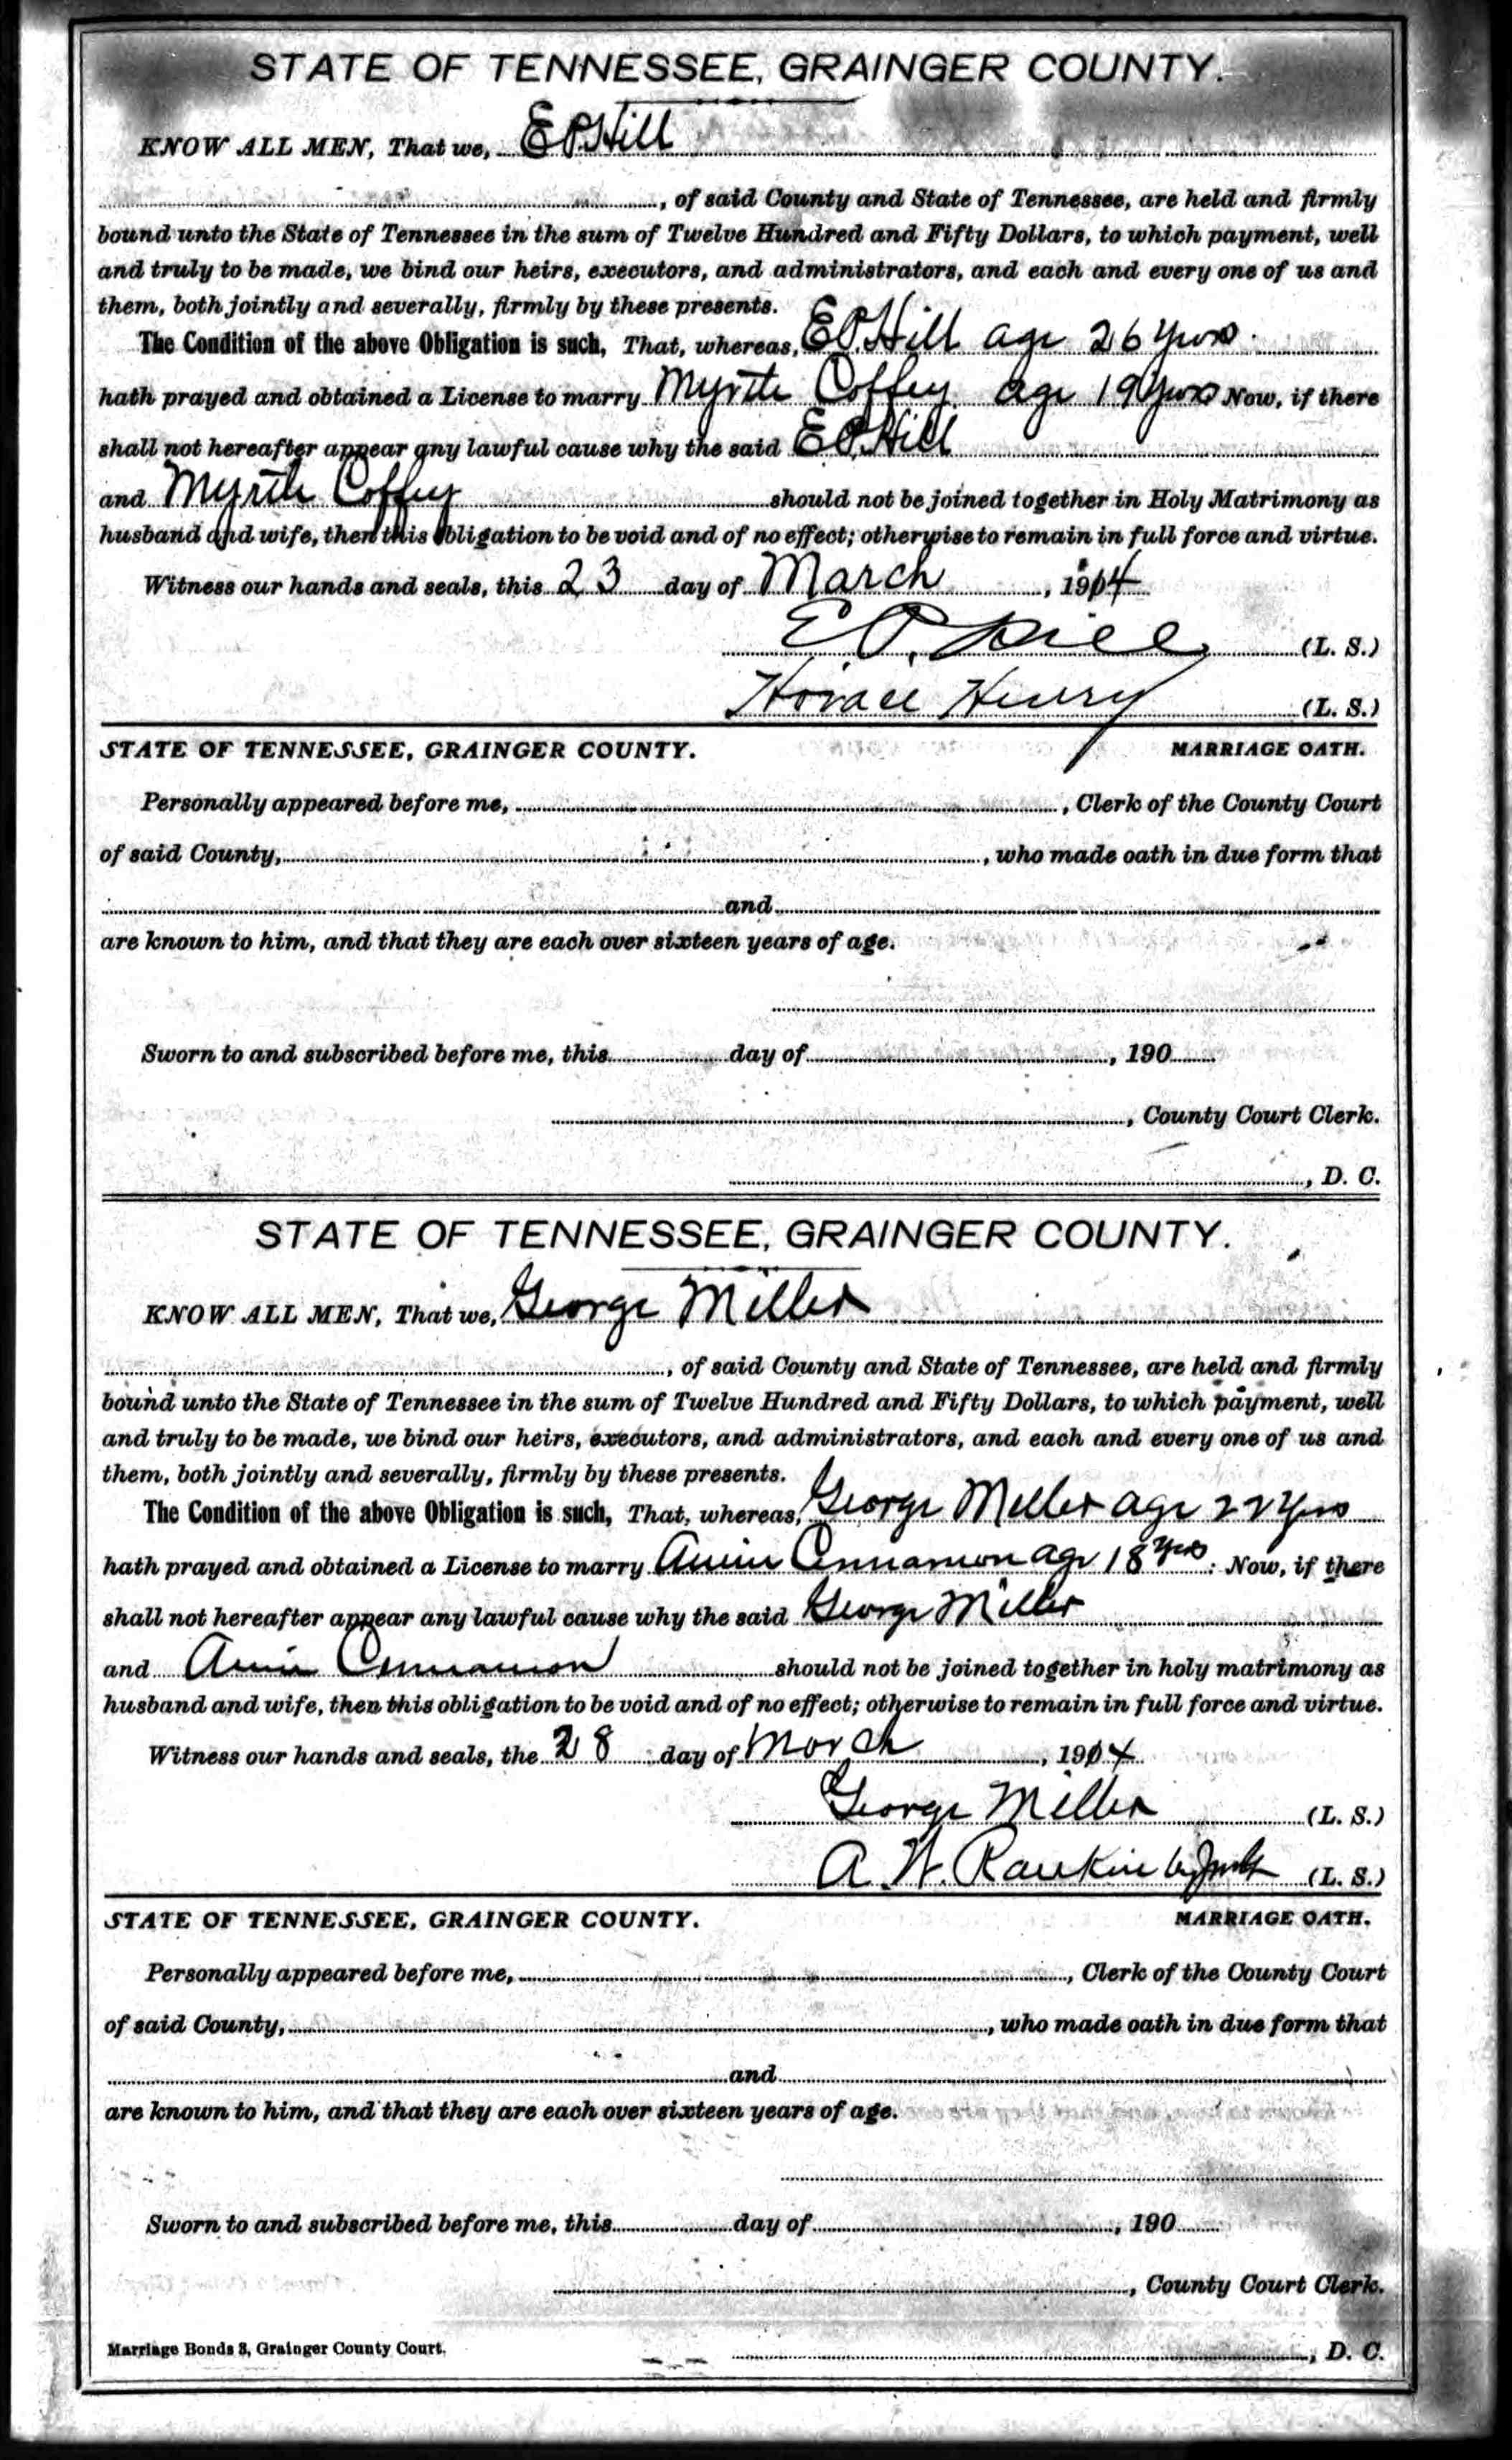 STATE OF TENNESSEE, GRAINGER COUNTY.
KNOW ALL MEN, That we, E P. Hill
, of said County and State of Tennessee, are held and firmly
bound unto the State of Tennessee in the sum of Twelve Hundred and Fifty Dollars, to which payment, well
and truly to be made, we bind our heirs, executors, and administrators, and each and every one of us and
them, both jointly and severally, firmly by these presents.
The Condition of the above Obligation is such, That, whereas, E P. Hill age 26 years
hath prayed and obtained a License to marry Myrtle Coffey age 19 years Now, if there
shall not hereafter appear any lawful cause why the said E P. Hill
and Myrtle Coffey should not be joined together in Holy Matrimony as
husband and wife, then this obligation to be void and of no effect; otherwise to remain in full force and virtue.
Witness our hands and seals, this 23 day of March, 1904
E P. Hill (L. S.)
Horace Henry (L. S.)
STATE OF TENNESSEE, GRAINGER COUNTY. MARRIAGE OATH.
Personally appeared before me, , Clerk of the County Court
of said County, , who made oath in due form that
and
are known to him, and that they are each over sixteen years of age.
Sworn to and subscribed before me, this day of , 190
, County Court Clerk.
, D. C.
STATE OF TENNESSEE, GRAINGER COUNTY.
KNOW ALL MEN, That we, George Miller
, of said County and State of Tennessee, are held and firmly
bound unto the State of Tennessee in the sum of Twelve Hundred and Fifty Dollars, to which payment, well
and truly to be made, we bind our heirs, executors, and administrators, and each and every one of us and
them, both jointly and severally, firmly by these presents.
The Condition of the above Obligation is such, That, whereas, George Miller age 22 years
hath prayed and obtained a License to marry Annie Cinnamon age 18 yrs: Now, if there
shall not hereafter appear any lawful cause why the said George Miller
and Annie Cinnamon should not be joined together in holy matrimony as
husband and wife, then this obligation to be void and of no effect; otherwise to remain in full force and virtue.
Witness our hands and seals, the 28 day of March, 1904
George Miller (L. S.)
A. W. Rankin by (L. S.)
STATE OF TENNESSEE, GRAINGER COUNTY. MARRIAGE OATH.
Personally appeared before me, , Clerk of the County Court
of said County, , who made oath in due form that
and
are known to him, and that they are each over sixteen years of age.
Sworn to and subscribed before me, this day of , 190
, County Court Clerk.
Marriage Bonds 3, Grainger County Court. , D. C.